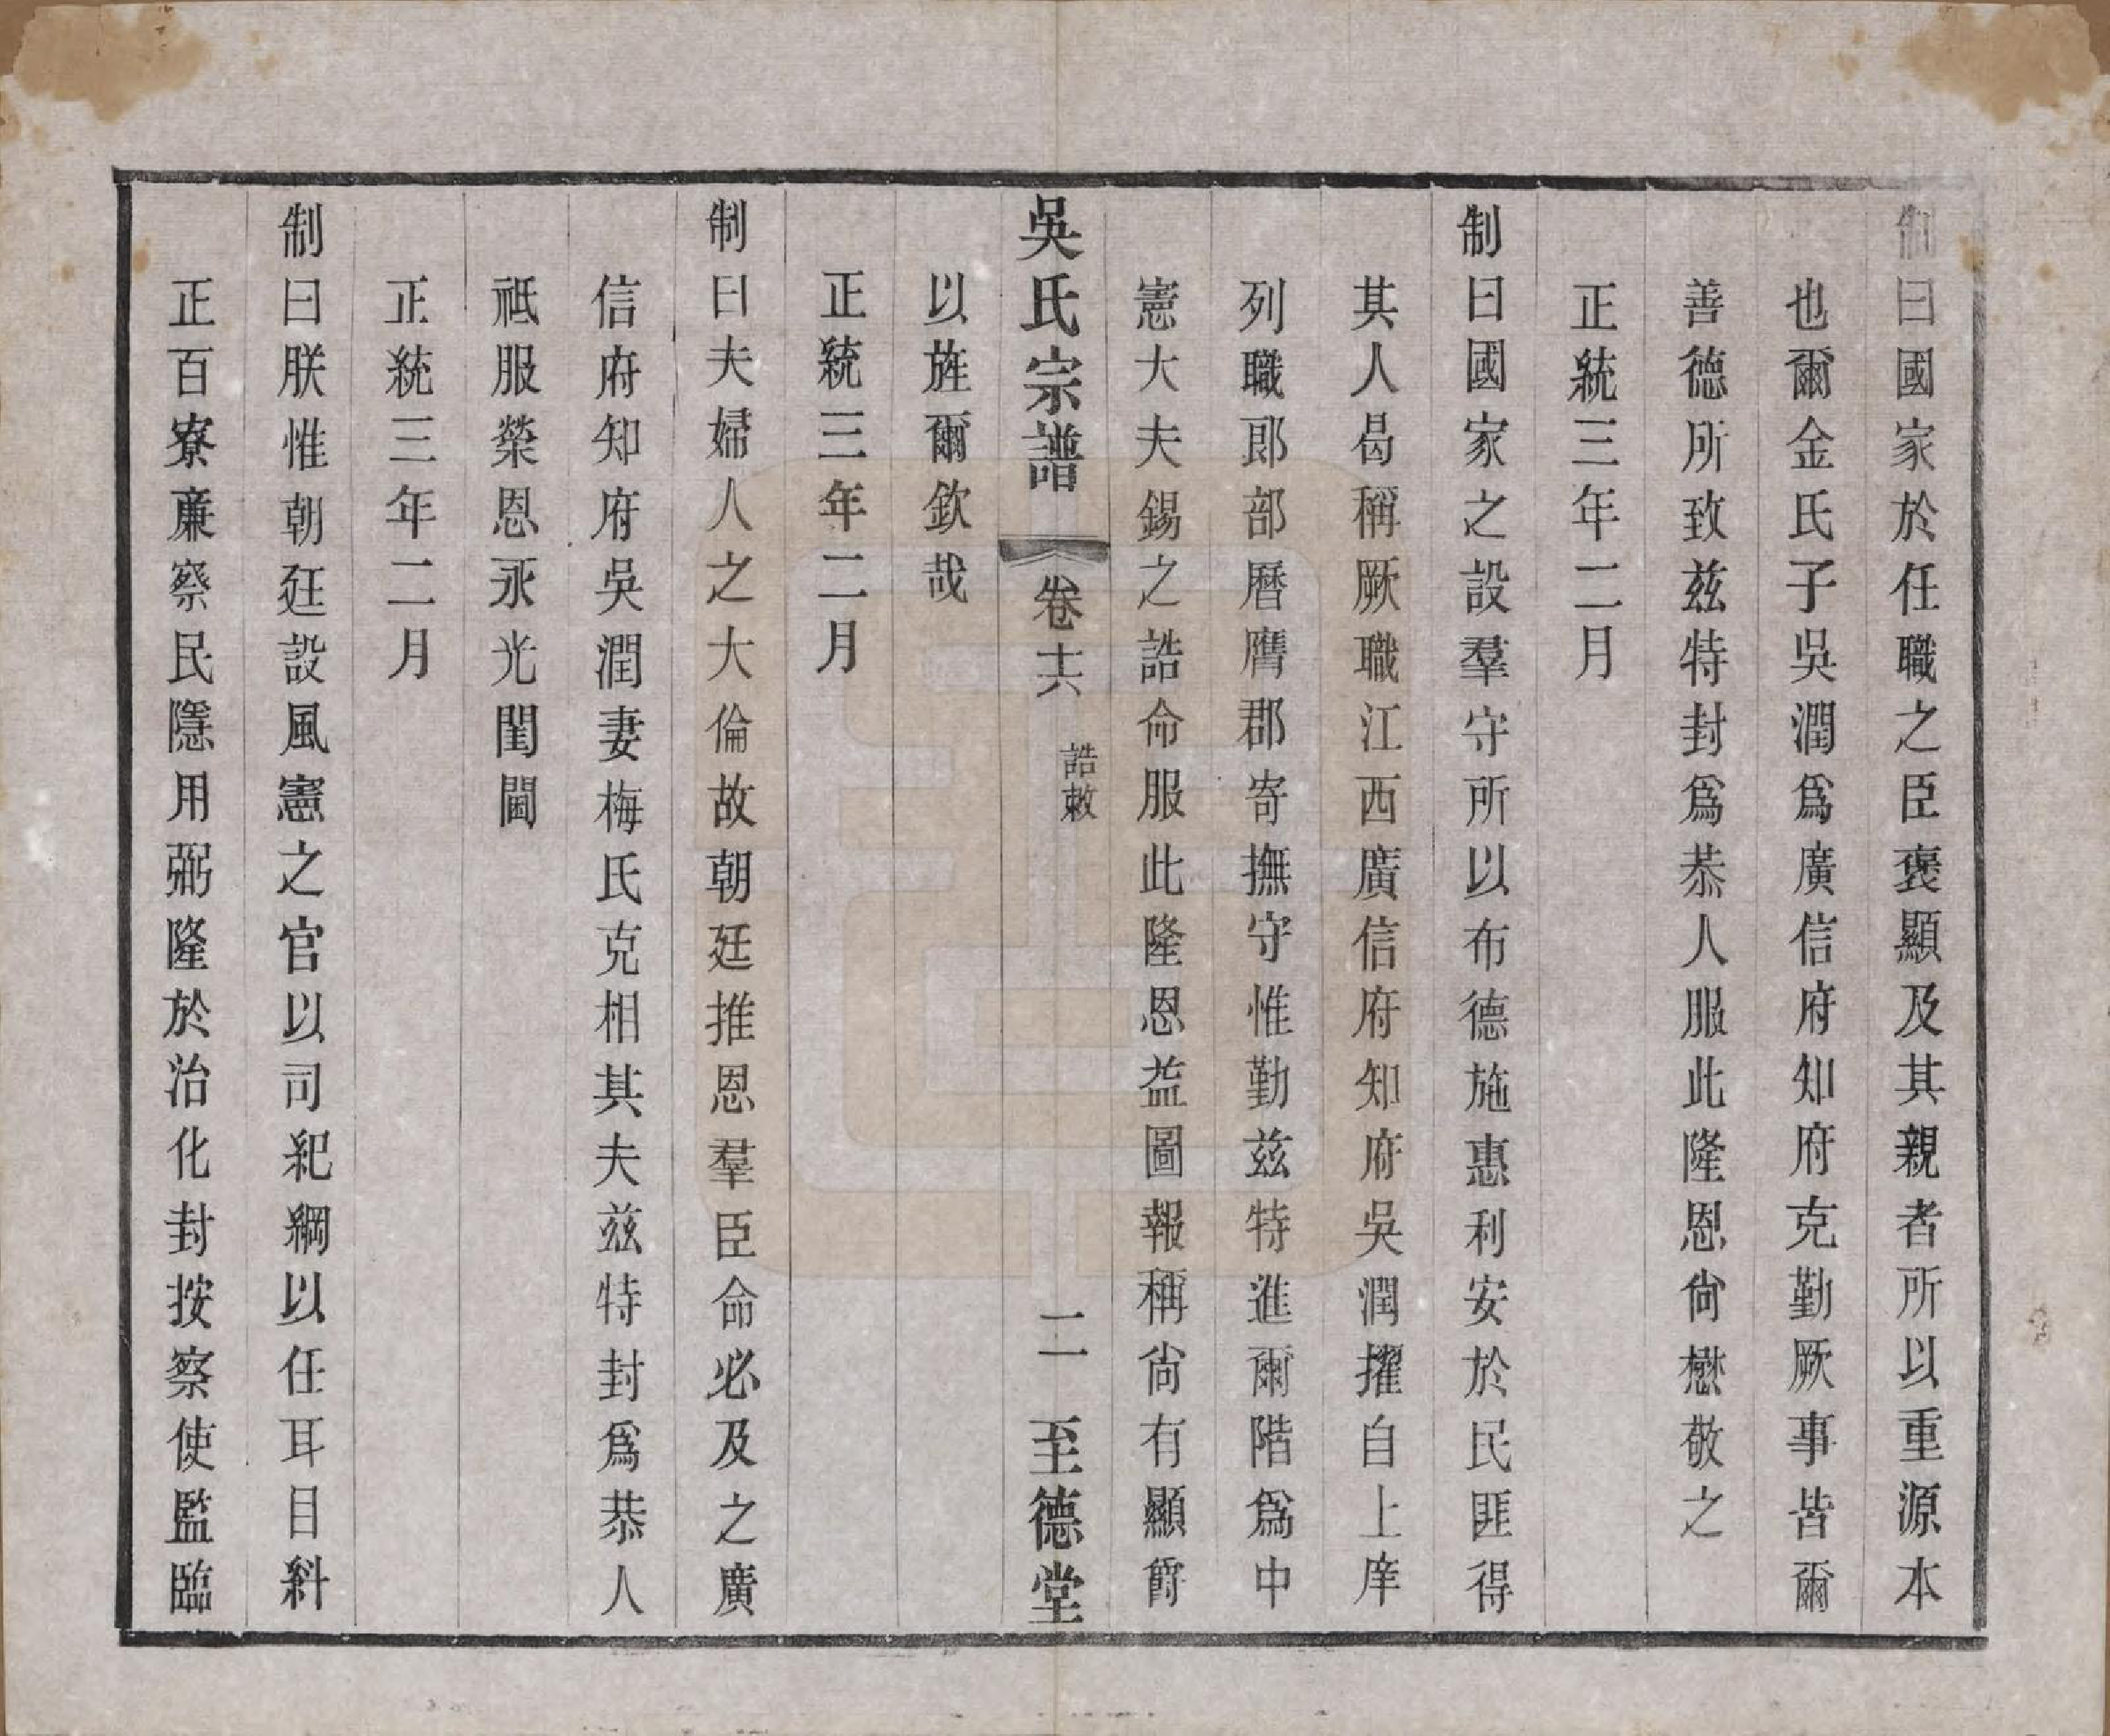 制曰國家於任職之臣褒顯及其親者所以重源本
也爾金氏子吳潤爲廣信府知府克勤厥事皆爾
善德所致茲特封爲恭人服此隆恩尙懋敬之
正統三年二月
制曰國家之設羣守所以布德施惠利安於民匪得
其人曷稱厥職江西廣信府知府吳潤擢自上庠
列職郎部曆膺郡寄撫守惟勤茲特進爾階爲中
憲大夫錫之誥命服此隆恩益圖報稱尙有顯爵
以旌爾欽哉
正統三年二月
吳氏宗譜 卷十六 誥敕 二 至德堂
制曰夫婦人之大倫故朝廷推恩羣臣命必及之廣
信府知府吳潤妻梅氏克相其夫茲特封爲恭人
祗服榮恩永光閨閫
正統三年二月
制曰朕惟朝廷設風憲之官以司紀綱以任耳目糾
正百寮亷察民隱用弼隆於治化封按察使監臨